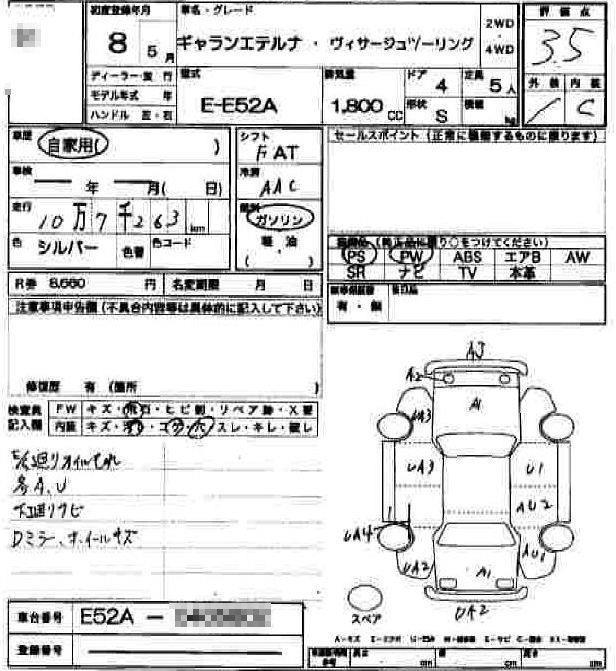 初度登録年月
8 年 5 月
車名・グレード
ギャランエテルナ・ヴィサージュツーリング
2WD
4WD
評価点
3.5
外装 内装
C
ディーラー・並行
モデル年式 年
ハンドル 左・右
型式
E-E52A
排気量
1,800 CC
ドア 4
形状 S
定員 5人
積載 kg
車歴
自家用( )
シフト
F AT
車検
年 月( 日)
冷房
AAC
走行
10万7千263 km
燃料
ガソリン
軽油
( )
色 シルバー 色替 色コード
セールスポイント (正常に稼動するものに限ります)
PS PW ABS エアB AW
SR ナビ TV 本革
有・無
R券 8,660 円
名変期限 月 日
注意事項申告欄 (不具合内容等は具体的に記入して下さい)
修復歴 有 (箇所 )
検査員記入欄
FW キズ・飛石・ヒビ割・リペア跡・X要
内装 キズ・汚れ・コゲ・穴・スレ・キレ・破レ
各A、U
下廻りサビ
Dミラー、ホイールキズ
A3
A2
A1
UA3
UA3
U1
AU2
UA4
UA2
AU1
A1
UA2
スペア
車台番号 E52A −
登録番号